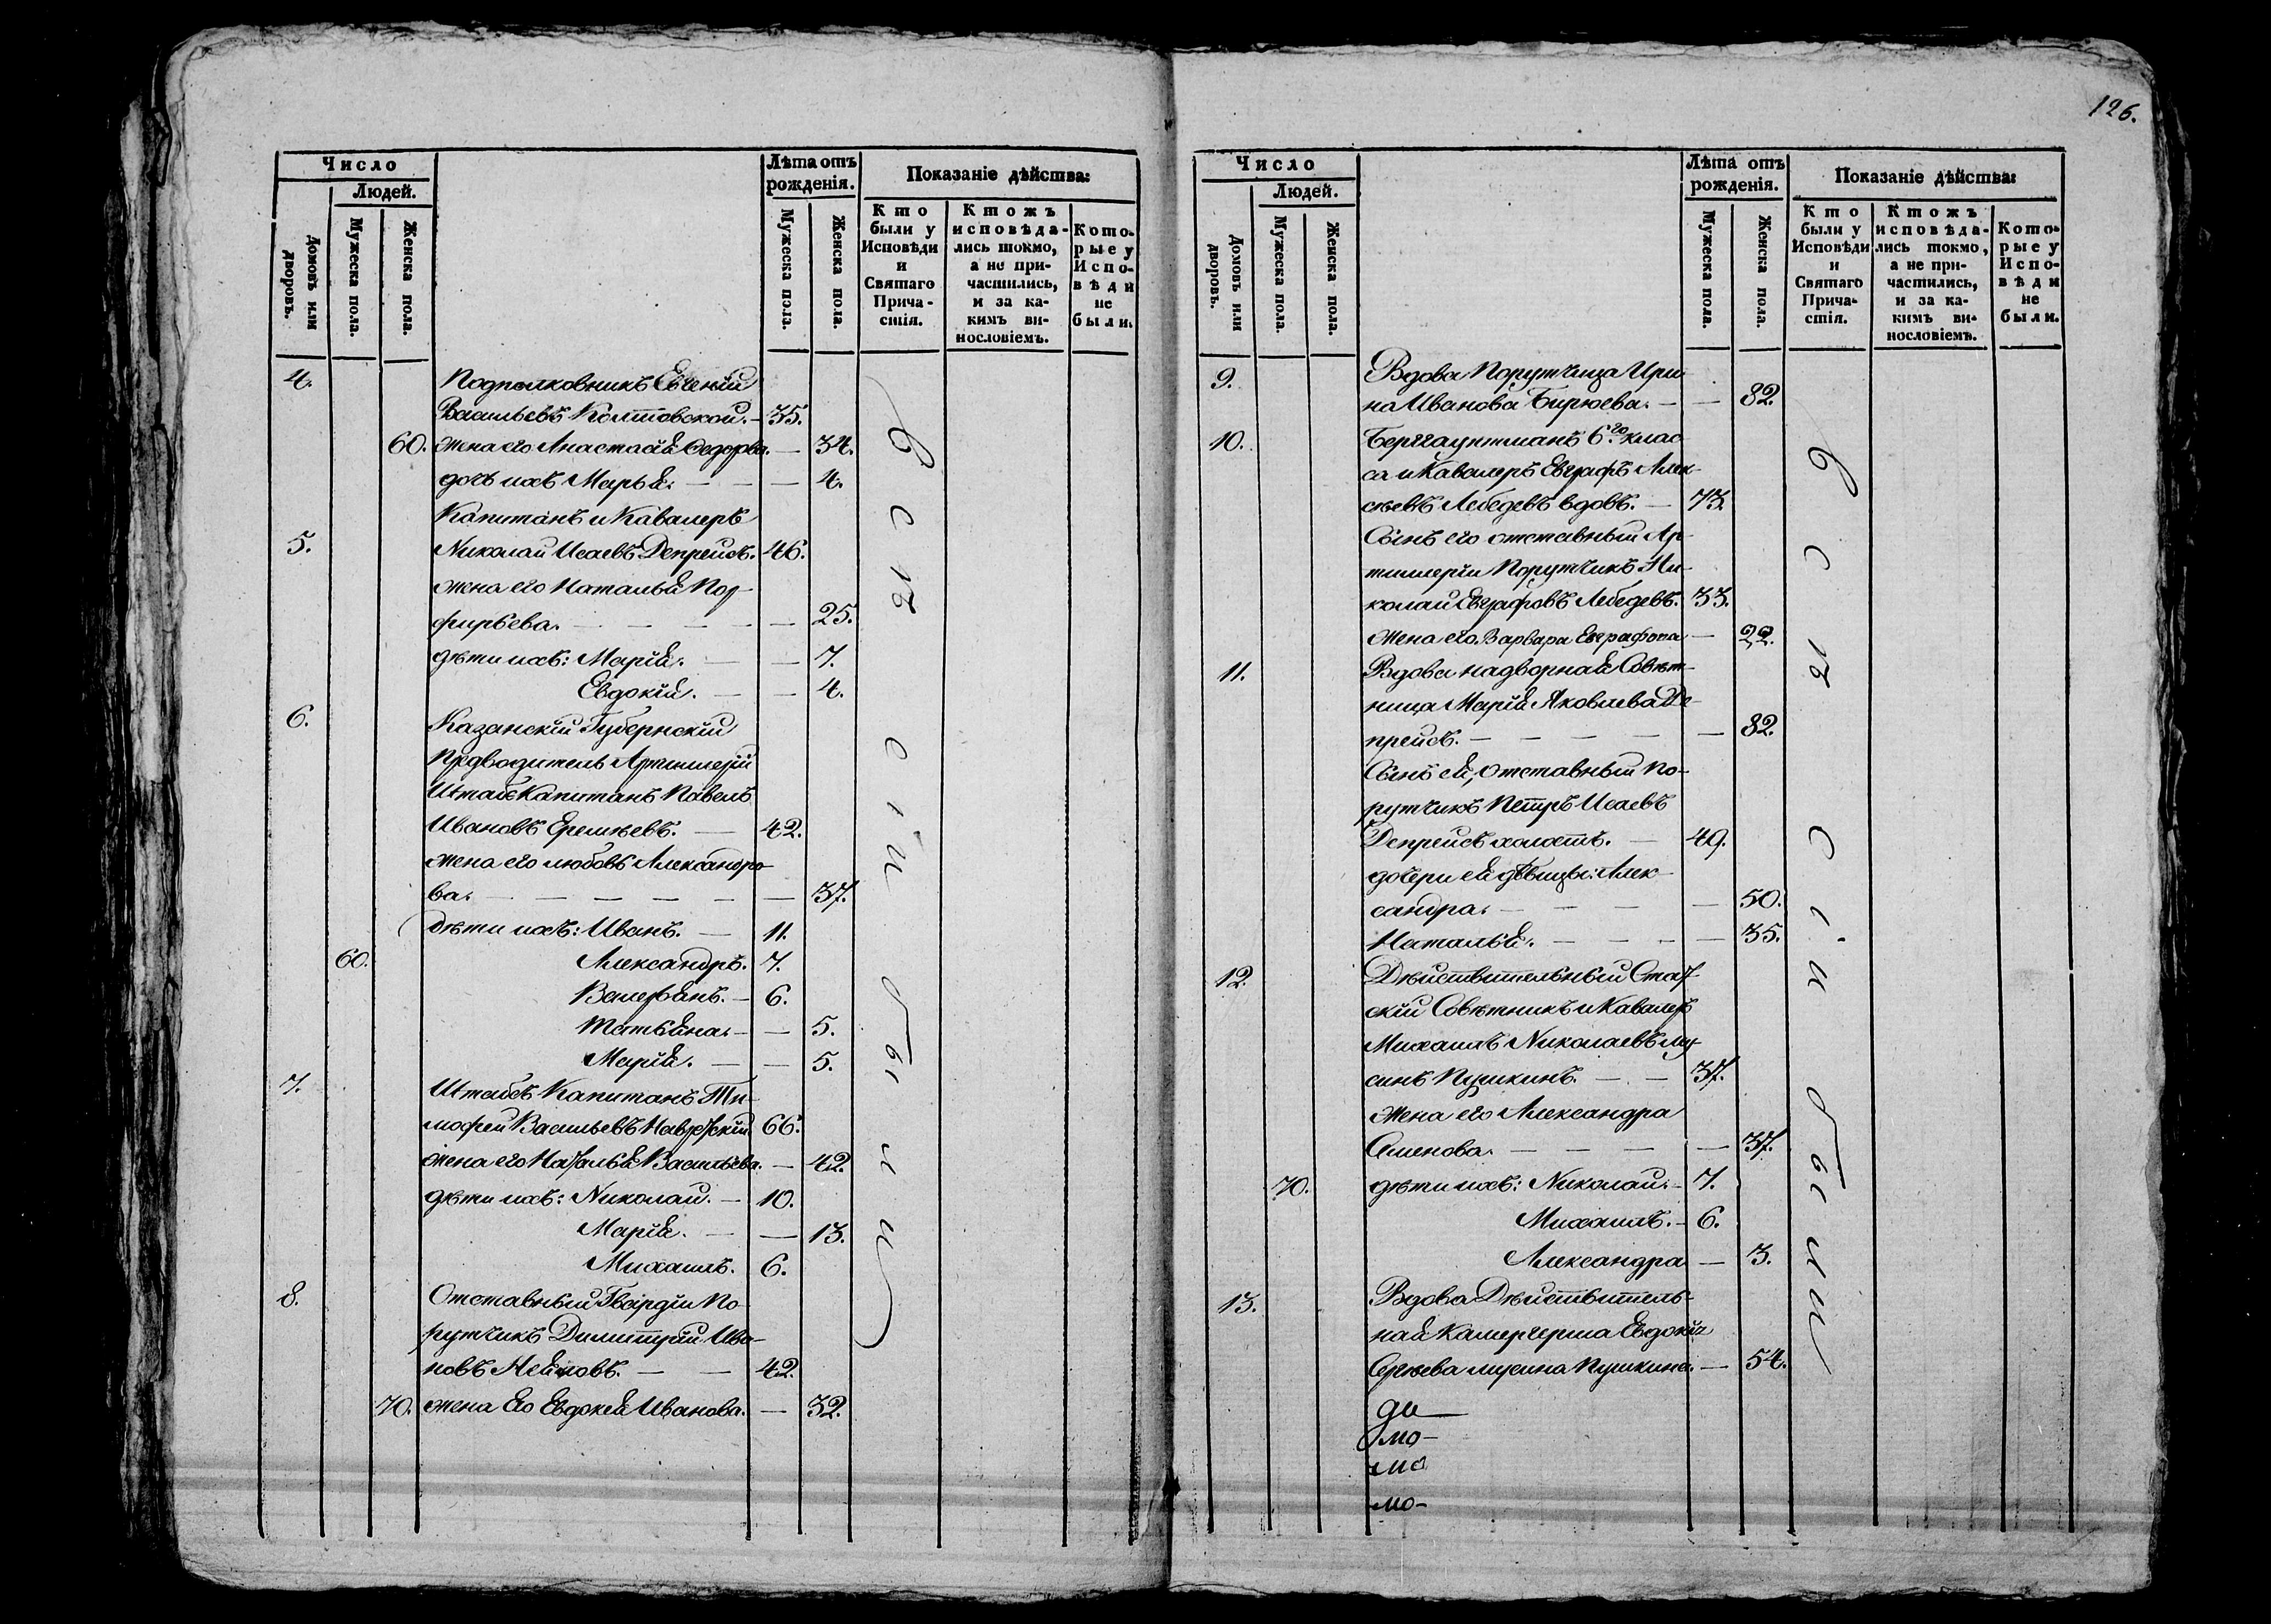 126.
Число
Людей.
Домовъ или дворовъ.
Мужеска пола.
Женска пола.
Лѣта отъ рожденія.
Мужеска пола.
Женска пола.
Показаніе дѣйства:
Кто были у Исповѣди и Святаго Прича-стія.
Ктожъ исповѣда-лись токмо, а не при-частились, и за ка-кимъ ви-нословіемъ.
Кото-рые у Испо-вѣди не были.
4. Подполковникъ Евгеній
Васильевъ Колтовской. — 35.
60. жена его Анастасія Федорова. — 34.
дочь ихъ Марья. — — — 4.
Капитанъ и Кавалеръ
5. Николай Исаевъ Депрейсъ. 46.
жена его Наталья Пор-
фирьева. — — — — 25.
дѣти ихъ: Марія. — — 7.
Евдокія. — — 4.
6. Казанскій Губернскій
Предводитель Артиллеріи
Штабсъ Капитанъ Павелъ
Ивановъ Еремѣевъ. — 42.
жена его любовь Александро-
ва. — — — — — — 37.
дѣти ихъ: Иванъ. — 11.
60. Александръ. 7.
Валерьянъ. — 6.
Татьяна. — — 5.
Марія. — — 5.
7. Штабсъ Капитанъ Ти-
мофей Васильевъ 66.
жена его Наталья Васильева. — 42.
дѣти ихъ: Николай. — 10.
Марія. — — 13.
Михаилъ. 6.
8. Отставный Гвардіи По-
рутчикъ Димитрій Ива-
новъ Нееловъ. — — 42.
70. жена Его Евдокея Иванова. — 32.
у Исповѣди
были
Число
Людей.
Домовъ или дворовъ.
Мужеска пола.
Женска пола.
Лѣта отъ рожденія.
Мужеска пола.
Женска пола.
Показаніе дѣйства:
Кто были у Исповѣди и Святаго Прича-стія.
Ктожъ исповѣда-лись токмо, а не при-частились, и за ка-кимъ ви-нословіемъ.
Кото-рые у Испо-вѣди не были.
9. Вдова Порутчица Ири-
на Иванова Бирюева. — — 82.
10. Берггауптманъ 6го клас-
са и Кавалеръ Евграфъ Алек-
сѣевъ Лебедевъ вдовъ. — 73.
Сынъ его отставный Ар-
тиллеріи Порутчикъ Ни-
колай Евграфовъ Лебедевъ. 33.
жена его Варвара Евграфова — 22.
11. Вдова надворная Совѣт-
ница Марія Яковлева Де-
прейсъ. — — — — — 82.
Сынъ ея, отставный По-
рутчикъ Петръ Исаевъ
Депрейсъ холостъ. — 49.
дочери ея дѣвицы: Алек-
сандра. — — — — 50.
Наталья. — — — — 35.
12. Дѣйствительный Стат-
скій Совѣтникъ и Кавалеръ
Михаилъ Николаевъ Му-
синъ Пушкинъ. — — 37.
жена его Александра
Семенова. — — — — 37.
70. дѣти ихъ: Николай. — 7.
Михаилъ. — 6.
Александра — 3.
13. Вдова Дѣйствитель-
ная Камергерша Евдокія
Сергѣева мусина Пушкина. — 54.